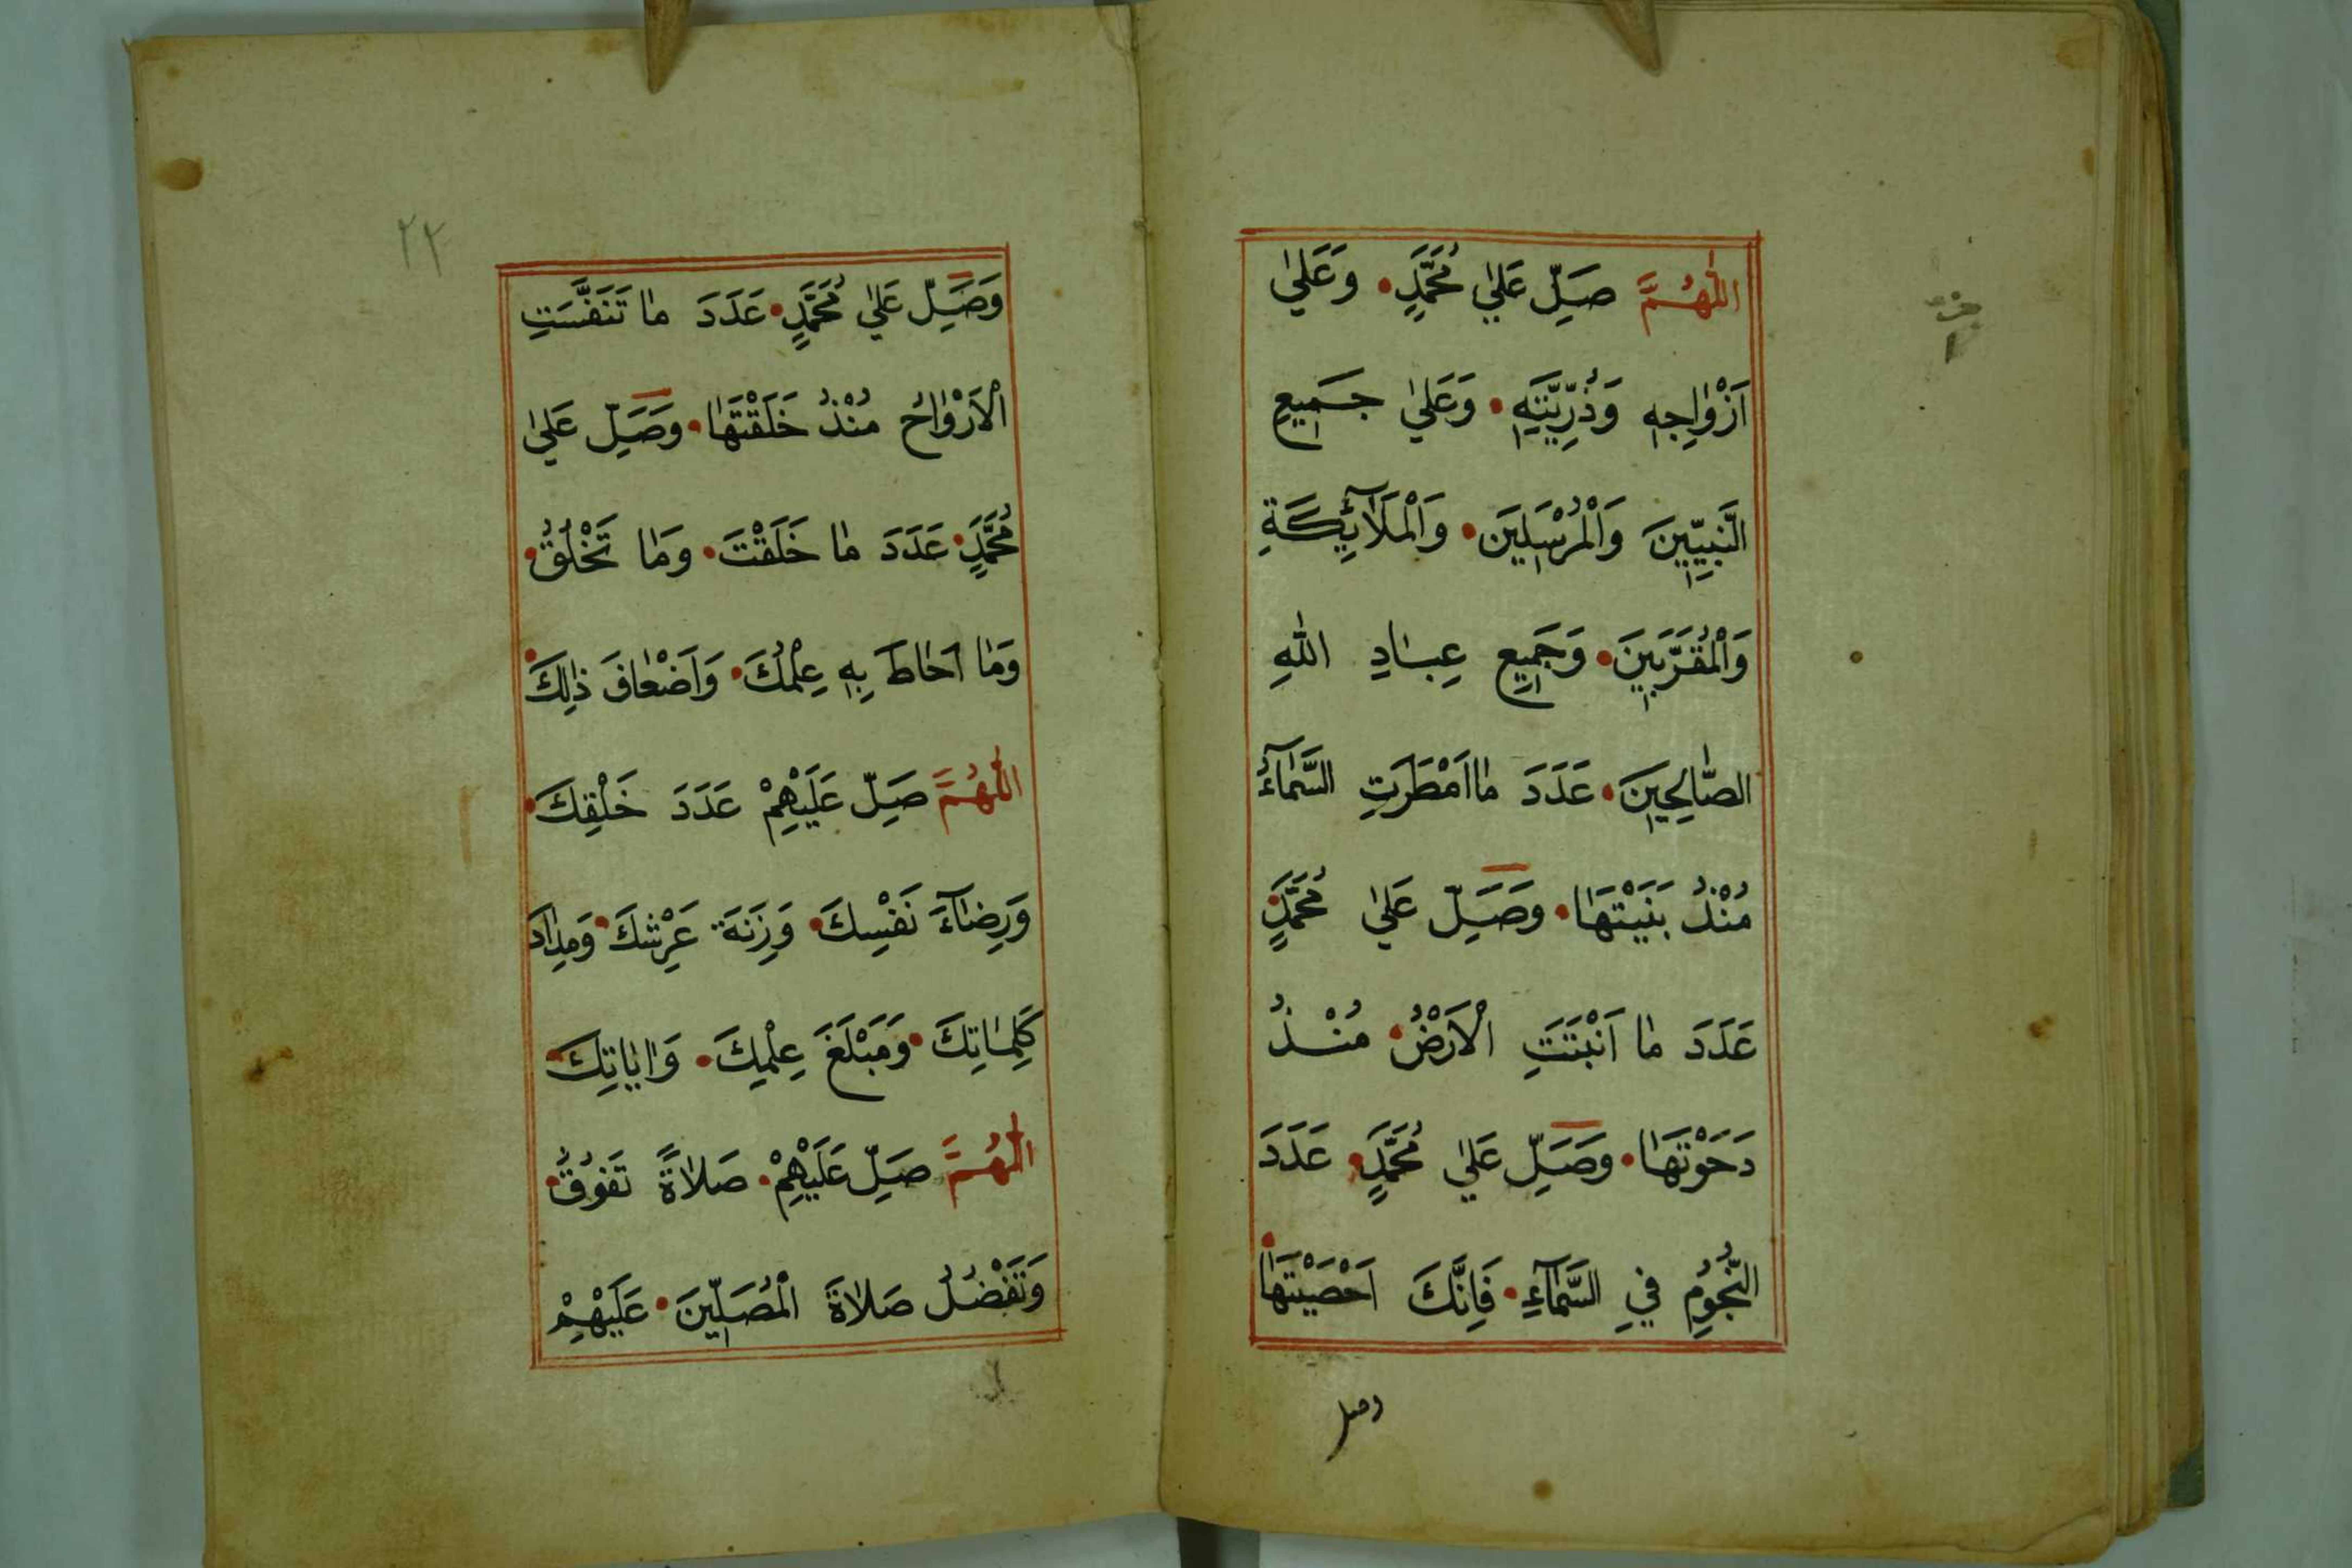 اَللّٰهُمَّ صَلِّ عَلٰي مُحَمَّدٍ • وَعَلٰي
اَزْوٰاجِهٖ وَذُرِّيَّتِهٖ • وَعَلٰي جَمٖيعِ
النَّبِيّٖينَ وَالْمُرْسَلٖينَ • وَالْمَلٰٓائِكَةِ
وَالْمُقَرَّبٖينَ • وَجَمٖيعِ عِبٰادِ اللّٰهِ
الصّٰالِحٖينَ • عَدَدَ مٰا اَمْطَرَتِ السَّمٰٓاءُ
مُنْذُ بَنَيْتَهٰا • وَصَلِّ عَلٰي مُحَمَّدٍ •
عَدَدَ مٰا اَنْبَتَتِ الْاَرْضُ • مُنْذُ
دَحَوْتَهٰا • وَصَلِّ عَلٰي مُحَمَّدٍ • عَدَدَ
النُّجُومِ فِي السَّمٰٓاءِ • فَاِنَّكَ اَحْصَيْتَهٰا •
وصل
٢٢
وَصَلِّ عَلٰي مُحَمَّدٍ • عَدَدَ مٰا تَنَفَّسَتِ
الْاَرْوٰاحُ مُنْذُ خَلَقْتَهٰا • وَصَلِّ عَلٰي
مُحَمَّدٍ • عَدَدَ مٰا خَلَقْتَ • وَمٰا تَخْلُقُ •
وَمٰا اَحٰاطَ بِهٖ عِلْمُكَ • وَاَضْعٰافَ ذٰلِكَ •
اَللّٰهُمَّ صَلِّ عَلَيْهِمْ عَدَدَ خَلْقِكَ •
وَرِضٰٓاءَ نَفْسِكَ • وَزِنَةَ عَرْشِكَ • وَمِدٰادَ
كَلِمٰاتِكَ • وَمَبْلَغَ عِلْمِكَ • وَاٰيٰاتِكَ •
اَللّٰهُمَّ صَلِّ عَلَيْهِمْ • صَلٰاةً تَفُوقُ •
وَتَفْضُلُ صَلٰاةَ الْمُصَلّٖينَ • عَلَيْهِمْ